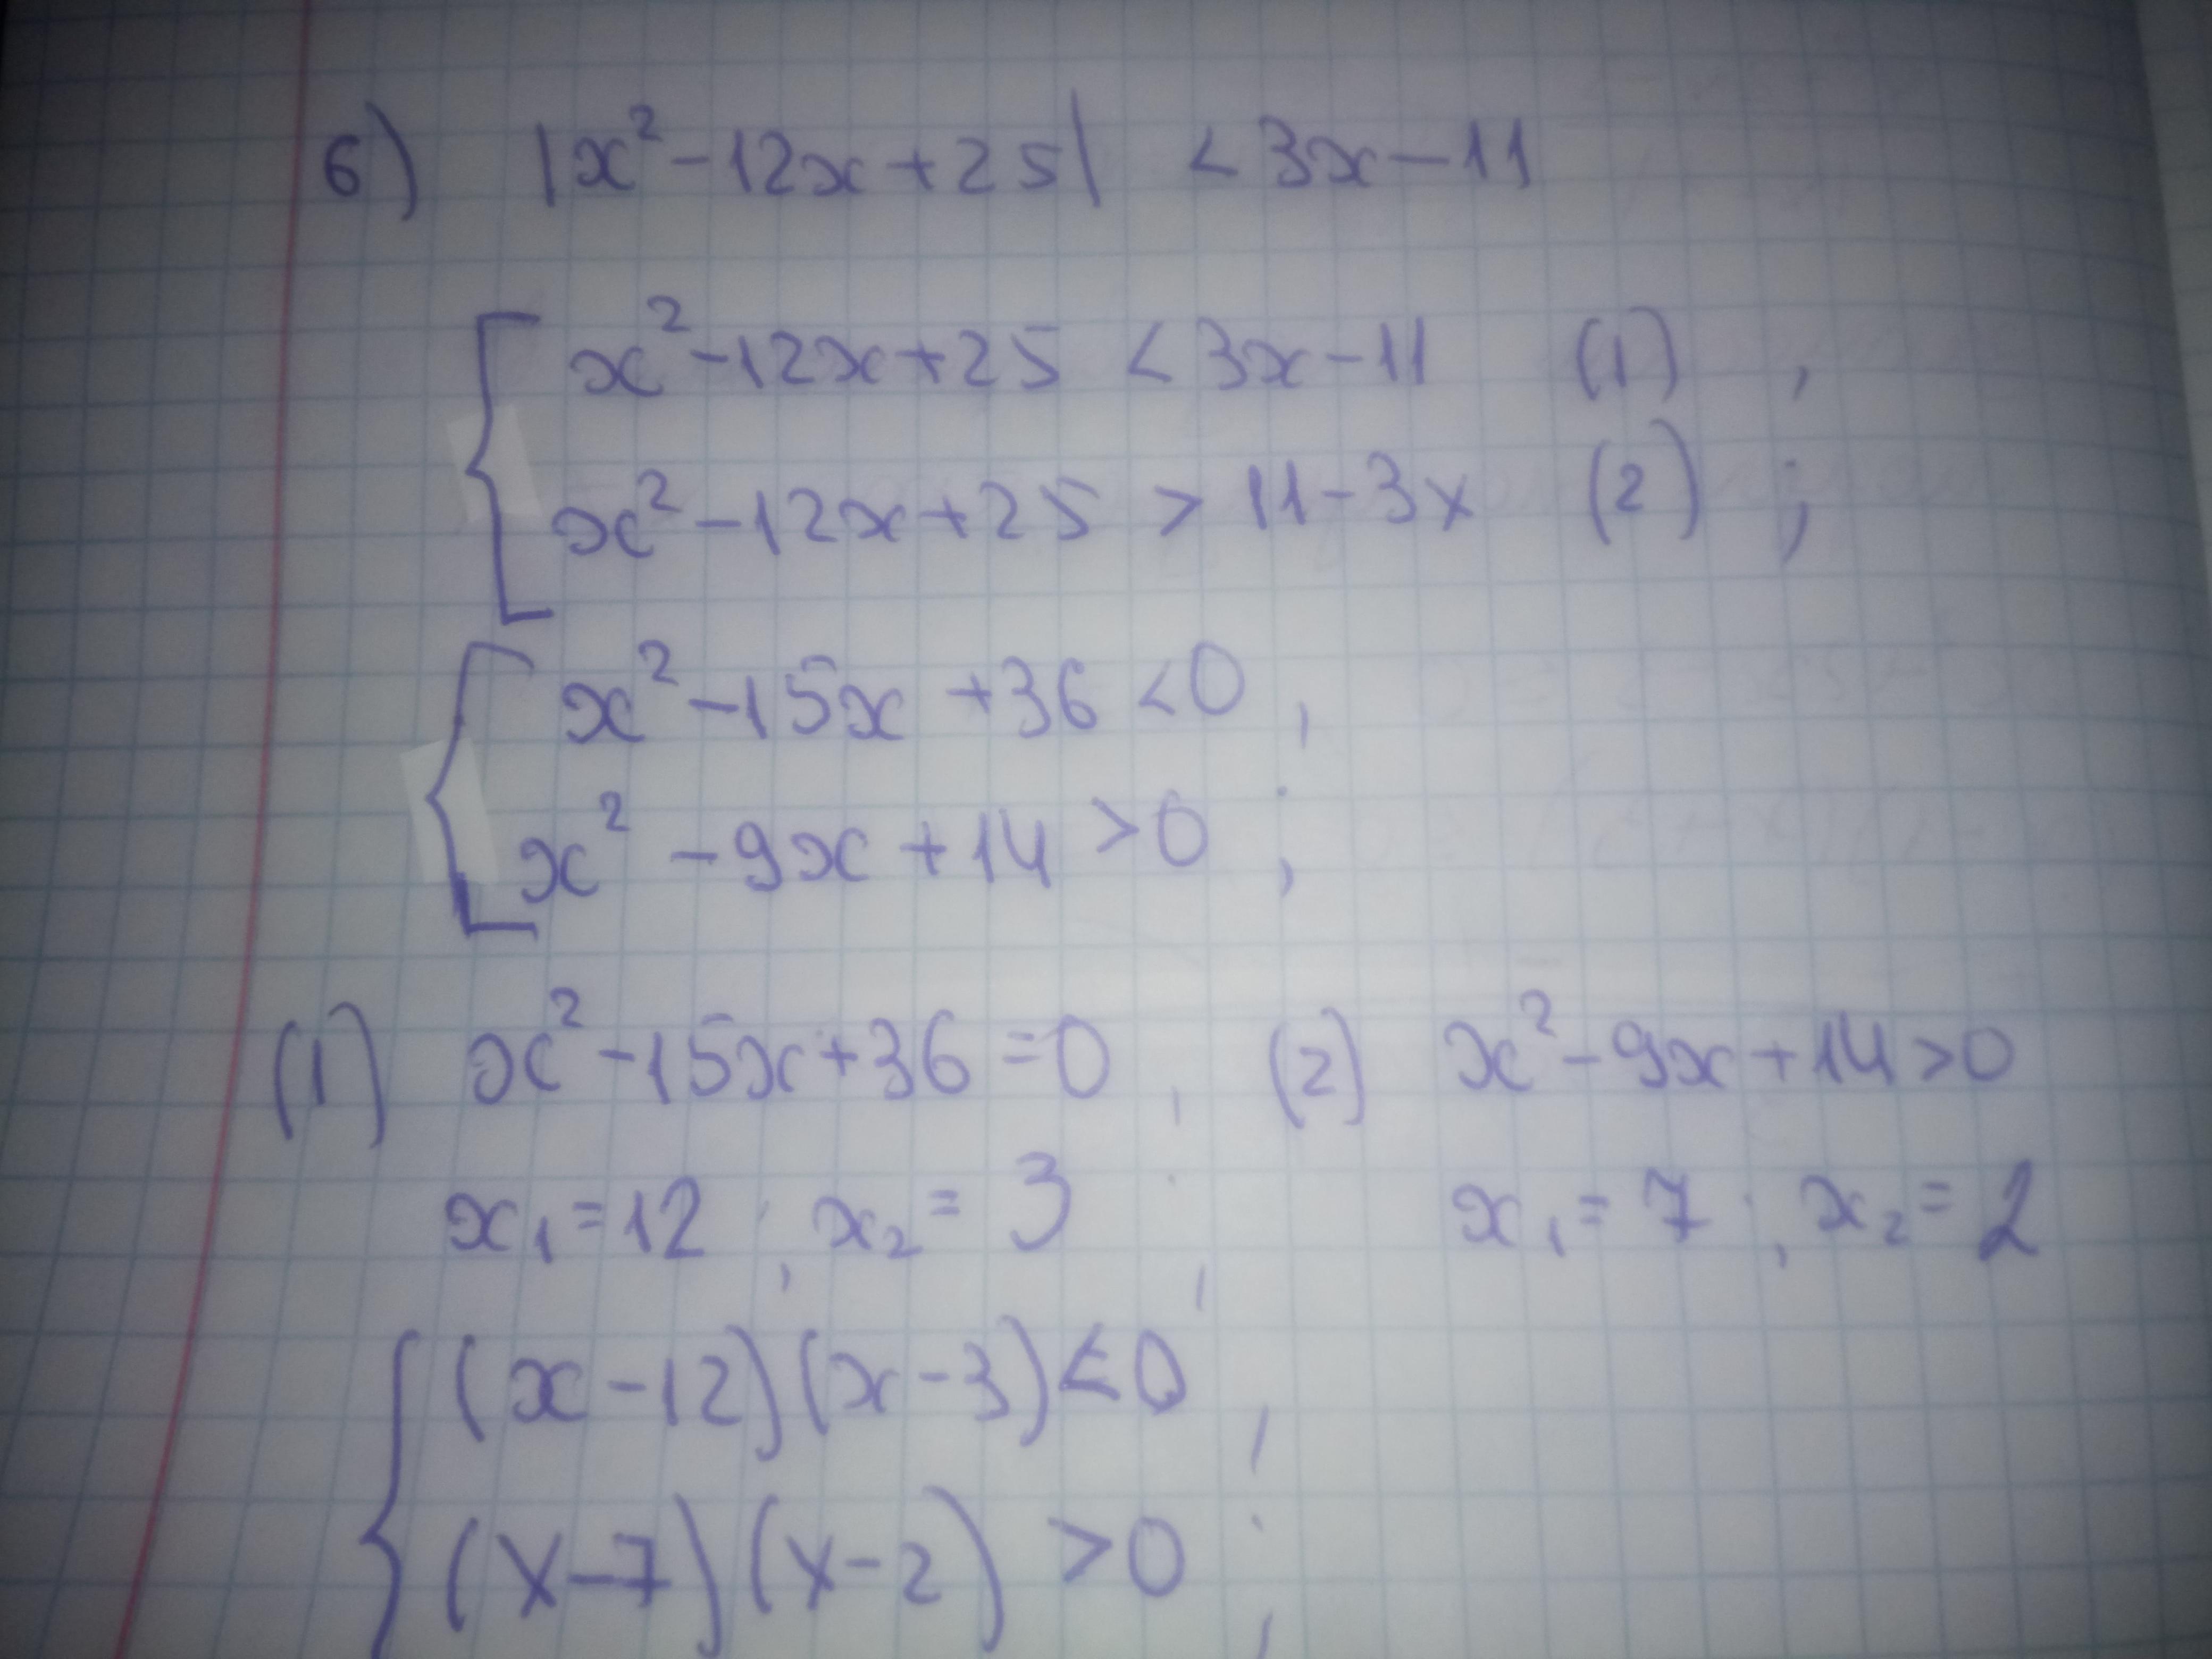 6) |x² - 12x + 25| < 3x - 11
x² - 12x + 25 < 3x - 11 (1) ,
x² - 12x + 25 > 11 - 3x (2) ;
x² - 15x + 36 < 0 ,
x² - 9x + 14 > 0 ;
(1) x² - 15x + 36 = 0 , (2) x² - 9x + 14 > 0
x₁ = 12 ; x₂ = 3 ; x₁ = 7 ; x₂ = 2
(x - 12)(x - 3) < 0 ,
(x - 7)(x - 2) > 0 ;